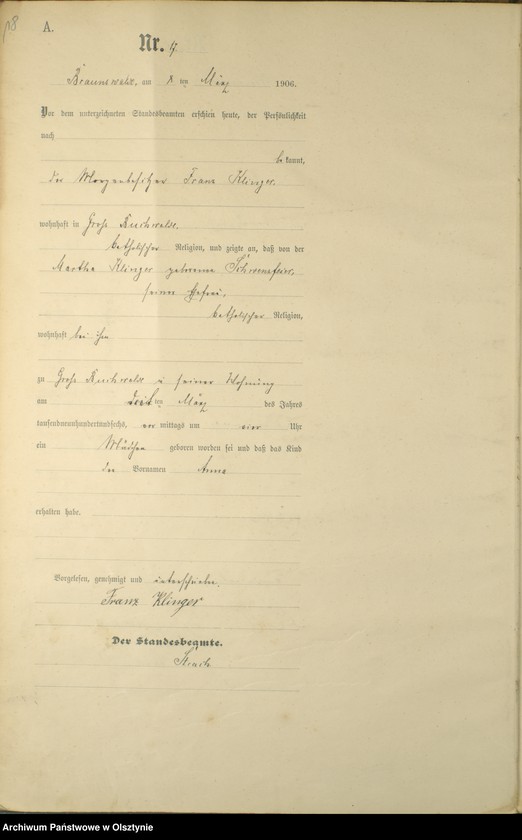 A.
Nr.
Braunswalde, am ten März 1906.
Vor dem unterzeichneten Standesbeamten erschien heute, der Persönlichkeit
nach
be kannt,
der Franz Klinger,
wohnhaft in Groß
katholischer Religion, und zeigte an, daß von der
Martha Klinger geborene
seiner Ehefrau,
katholischer Religion,
wohnhaft bei ihm
zu Groß in seiner Wohnung
am ten März des Jahres
tausendneunhundertundsechs, vor mittags um vier Uhr
ein Mädchen geboren worden sei und daß das Kind
den Vornamen Anna
erhalten habe.
Vorgelesen, genehmigt und unterschrieben.
Franz Klinger
Der Standesbeamte.
Archiwum Państwowe w Olsztynie